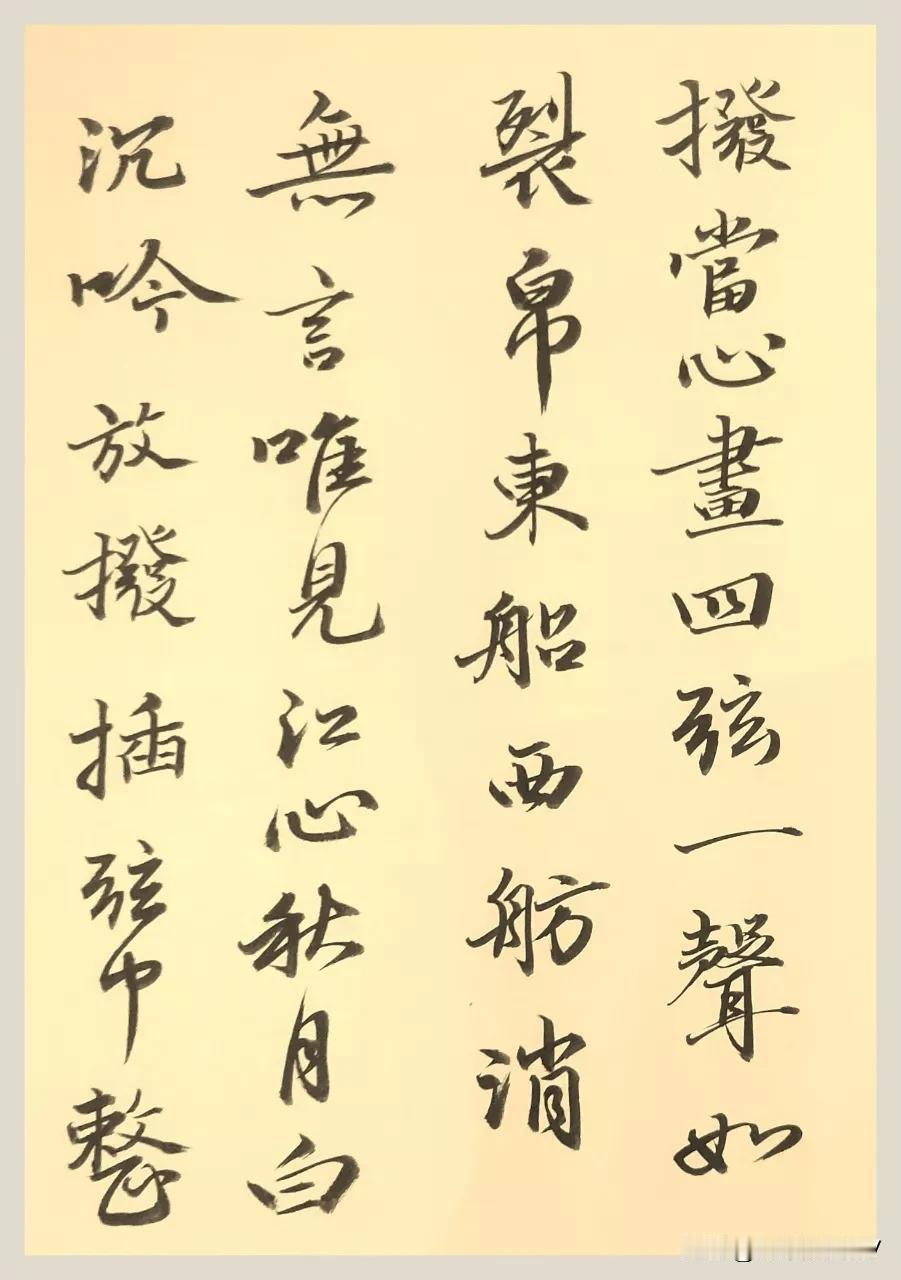 撥當心畫四弦一聲如
裂帛東船西舫消
無言唯見江心秋月白
沉吟放撥插弦中整